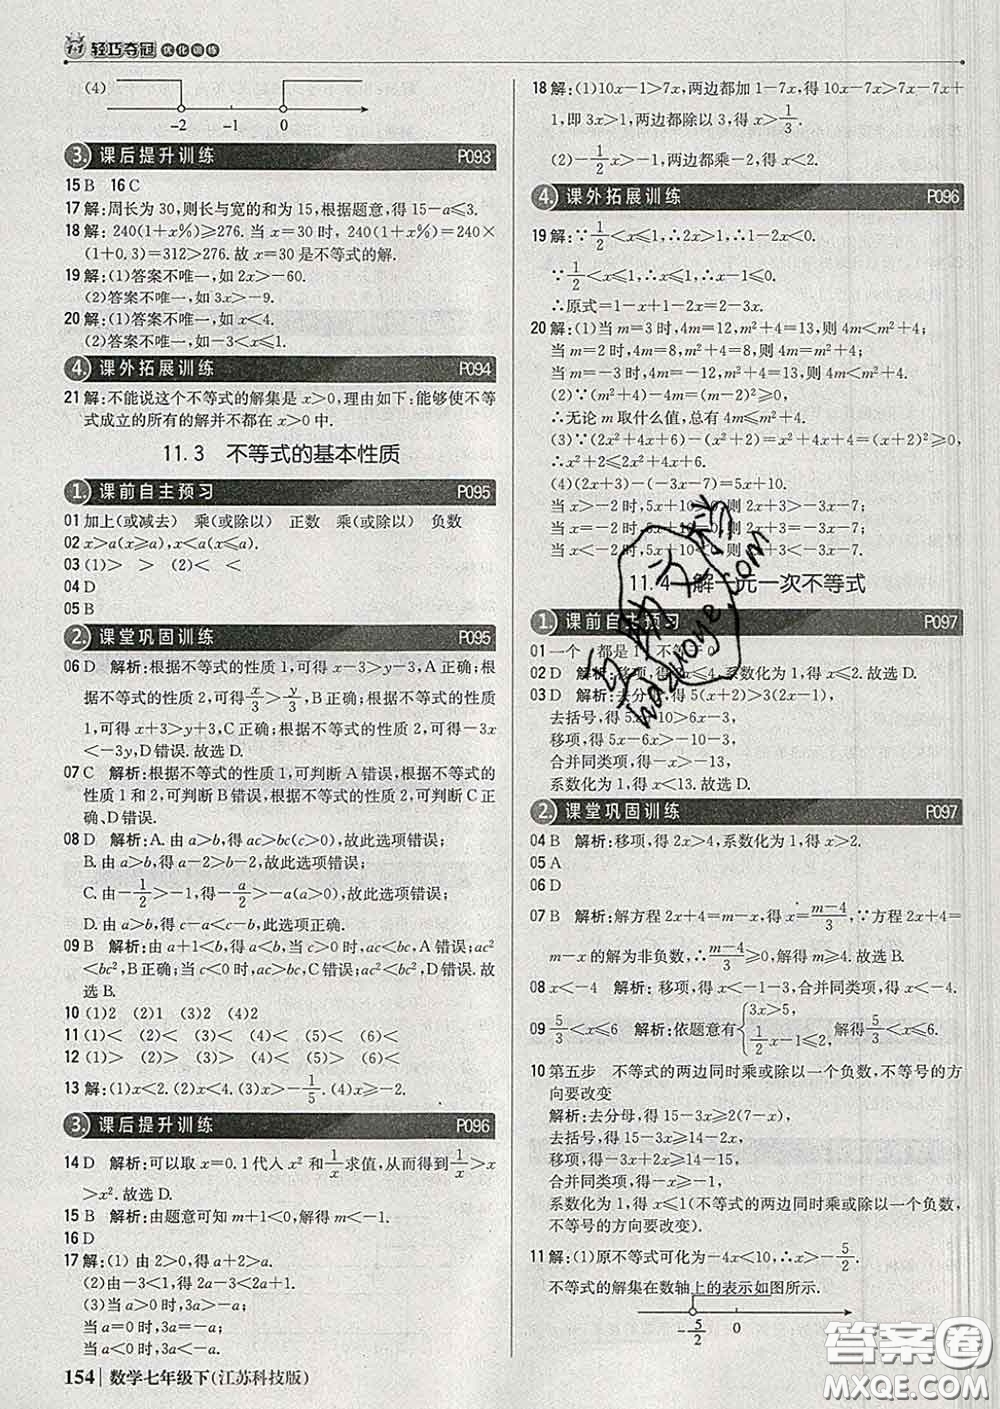 1+1 轻巧夺冠 优化训练
(4)
-2 -1 0
3. 课后提升训练 P093
15 B 16 C
17 解:周长为 30,则长与宽的和为 15,根据题意,得 15-a≤3.
18 解:240(1+x%)≥276. 当 x=30 时,240(1+x%)=240×
(1+0.3)=312>276. 故 x=30 是不等式的解.
19 解:(1)答案不唯一,如 2x>-60.
(2)答案不唯一,如 3x>-9.
20 解:(1)答案不唯一,如 x<4.
(2)答案不唯一,如-3<x≤1.
4. 课外拓展训练 P094
21 解:不能说这个不等式的解集是 x>0,理由如下:能够使不等
式成立的所有的解并不都在 x>0 中.
11.3 不等式的基本性质
1. 课前自主预习 P095
01 加上(或减去) 乘(或除以) 正数 乘(或除以) 负数
02 x>a(x≥a),x<a(x≤a).
03 (1)> > (2)< <
04 D
05 B
2. 课堂巩固训练 P095
06 D 解析:根据不等式的性质 1,可得 x-3>y-3,A 正确;根
据不等式的性质 2,可得 x/3>y/3,B 正确;根据不等式的性质
1,可得 x+3>y+3,C 正确;根据不等式的性质 2,可得-3x
<-3y,D 错误. 故选 D.
07 C 解析:根据不等式的性质 1,可判断 A 错误,根据不等式的
性质 1 和 2,可判断 B 错误,根据不等式的性质 2,可判断 C 正
确、D 错误.
08 D 解析:A. 由 a>b,得 ac>bc(c>0),故此选项错误;
B. 由 a>b,得 a-2>b-2,故此选项错误;
C. 由-1/2>-1,得-a/2>-a(a>0),故此选项错误;
D. 由 a>b,得 c-a<c-b,此选项正确.
09 B 解析:由 a+1<b,得 a<b,当 c>0 时,ac<bc,A 错误;ac²
<bc²,D 错误;当 c<0 时,ac>bc,C 错误;ac²<bc²,D 错误. 故
选 B.
10 (1)2 (2)1 (3)2 (4)2
11 (1)< (2)> (3)> (4)> (5)< (6)<
12 (1)> (2)> (3)< (4)> (5)< (6)<
13 解:(1)x<2. (2)x<4. (3)x>-1/5. (4)x≥-2.
3. 课后提升训练 P096
14 D 解析:可以取 x=0.1 代入 x² 和 1/x 求值,从而得到 1/x>x
>x². 故选 D.
15 B 解析:由题意可知 m+1<0,解得 m<-1.
16 D
17 解:(1) 由 2>0,得 a+2>a;
(2)由-3<1,得 2a-3<2a+1.
(3)当 a>0 时,3a>-a;
当 a=0 时,3a=-a;
当 a<0 时,3a<-a.
154 数学七年级下(江苏科技版)
18 解:(1)10x-1>7x,两边都加 1-7x,得 10x-7x>7x-7x+
1,即 3x>1,两边都除以 3,得 x>1/3.
(2)-1/2x>-1,两边都乘-2,得 x<2.
4. 课外拓展训练 P096
19 解:∵1/2<x≤1,∴2x>1,∴1-2x<0.
∵1/2<x≤1,∴x-1≤0,
∴原式=1-x+1-2x=2-3x.
20 解:(1)当 m=3 时,4m=12,m²+4=13,则 4m<m²+4;
当 m=2 时,4m=8,m²+4=8,则 4m=m²+4;
当 m=-3 时,4m=-12,m²+4=13,则 4m<m²+4.
(2)∵(m²+4)-4m=(m-2)²≥0,
∴无论 m 取什么值,总有 4m≤m²+4.
(3)∵(2x²+4x+6)-(x²+2)=x²+4x+4=(x+2)²≥0,
∴x²+2≤2x²+4x+6.
(4)(2x+3)-(-3x-7)=5x+10.
当 x>-2 时,5x+10>0,则 2x+3>-3x-7;
当 x=-2 时,5x+10=0,则 2x+3=-3x-7;
当 x<-2 时,5x+10<0,则 2x+3<-3x-7.
11.4 解一元一次不等式
1. 课前自主预习 P097
01 一个 都是 1 不等 0
02 D 解析:移项,得 2x≤4,系数化为 1,得 x≤2. 故选 D.
03 D 解析:去分母,得 5(x+2)>3(2x-1),
去括号,得 5x+10>6x-3,
移项,得 5x-6x>-10-3,
合并同类项,得-x>-13,
系数化为 1,得 x<13. 故选 D.
2. 课堂巩固训练 P097
04 B 解析:移项,得 2x>4,系数化为 1,得 x>2.
05 A
06 D
07 B 解析:解方程 2x+4=m-x,得 x=(m-4)/3,∵方程 2x+4=
m-x 的解为非负数,∴(m-4)/3≥0,解得 m≥4. 故选 B.
08 x<-4 解析: 移项,得 x<-1-3,合并同类项,得 x<-4.
09 5/3<x≤6 解析:依题意有{3x>5, 1/2x-1≤2, 解得 5/3<x≤6.
10 第五步 不等式的两边同时乘或除以一个负数,不等号的方
向要改变
解析:去分母,得 15-3x≥2(7-x),
去括号,得 15-3x≥14-2x,
移项,得-3x+2x≥14-15,
合并同类项,得-x≥-1,
系数化为 1,得 x≤1(不等式的两边同时乘或除以一个负数,
不等号的方向要改变).
11 解:(1)原不等式可化为-4x<10,∴x>-5/2.
不等式的解集在数轴上的表示如图所示.
-5/2 0
答案圈
MXQE.COM